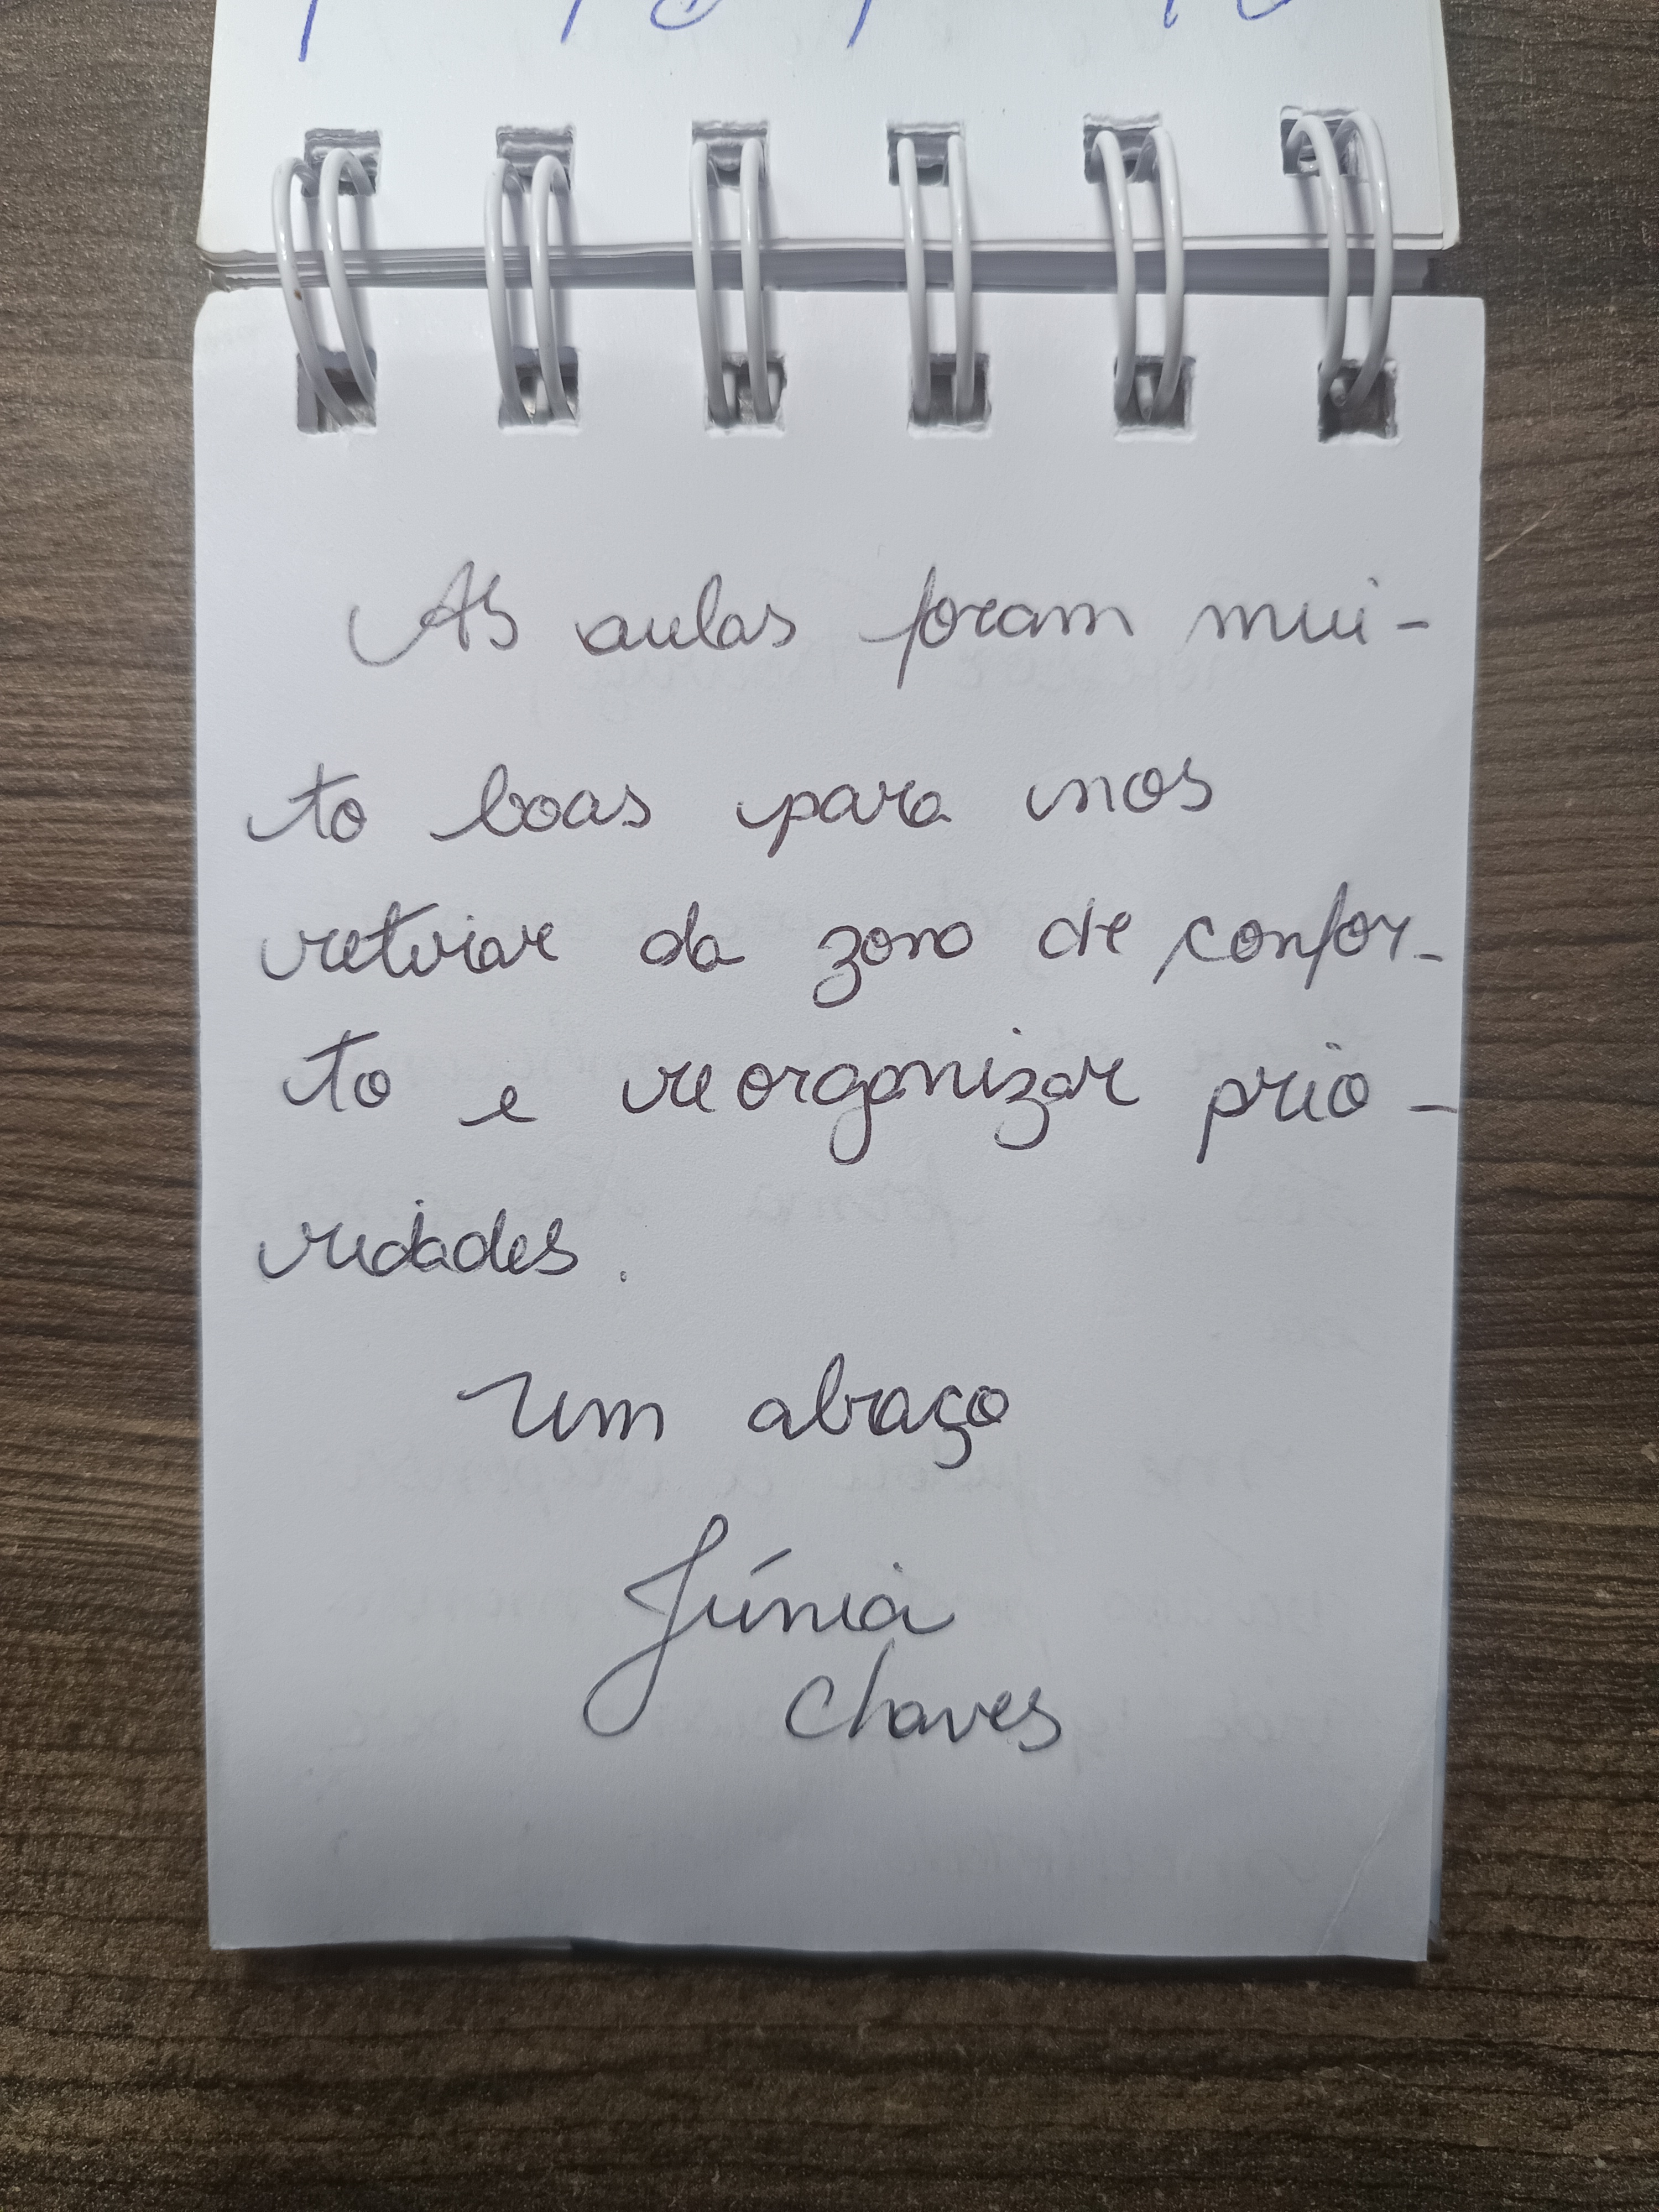 As aulas foram mui-
to boas para nos
retirar da zona de confor-
to e reorganizar prio-
ridades.
Um abraço
Júnia
Chaves